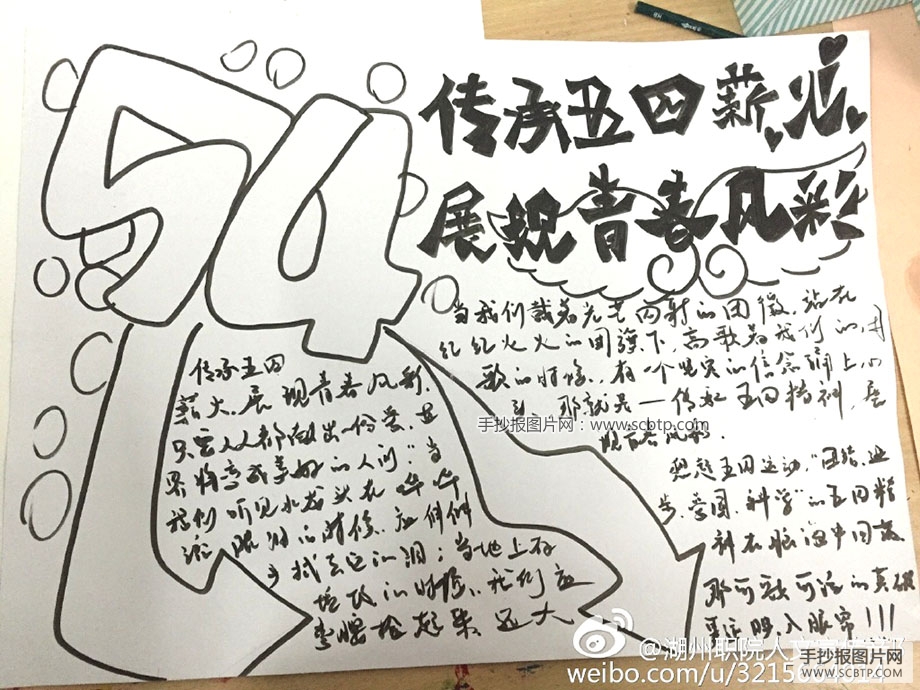 54
传承五四薪火
展现青春风彩
当我们戴着光芒四射的团徽,站在
红红火火的团旗下,高歌着我们的团
歌的时候,有一个坚定的信念涌上心
那就是一传承五四精神,展
现青春风彩.
想起五四运动,"团结、进
步、爱国、科学"的五四精
神在脑海中回荡
那可歌可泣的真
传承五四
薪火,展现青春风彩,
只要人人都献出一份爱,世
界将变成美好的人间."当
我们听见水龙头在哗哗
的时候,应伸
手拭去它的泪;当地上有
的时候,我们应
手抄报图片网:www.scbtp.com
@湖州职院人文
weibo.com/u/3215
手抄报图片网
WWW.SCBTP.COM